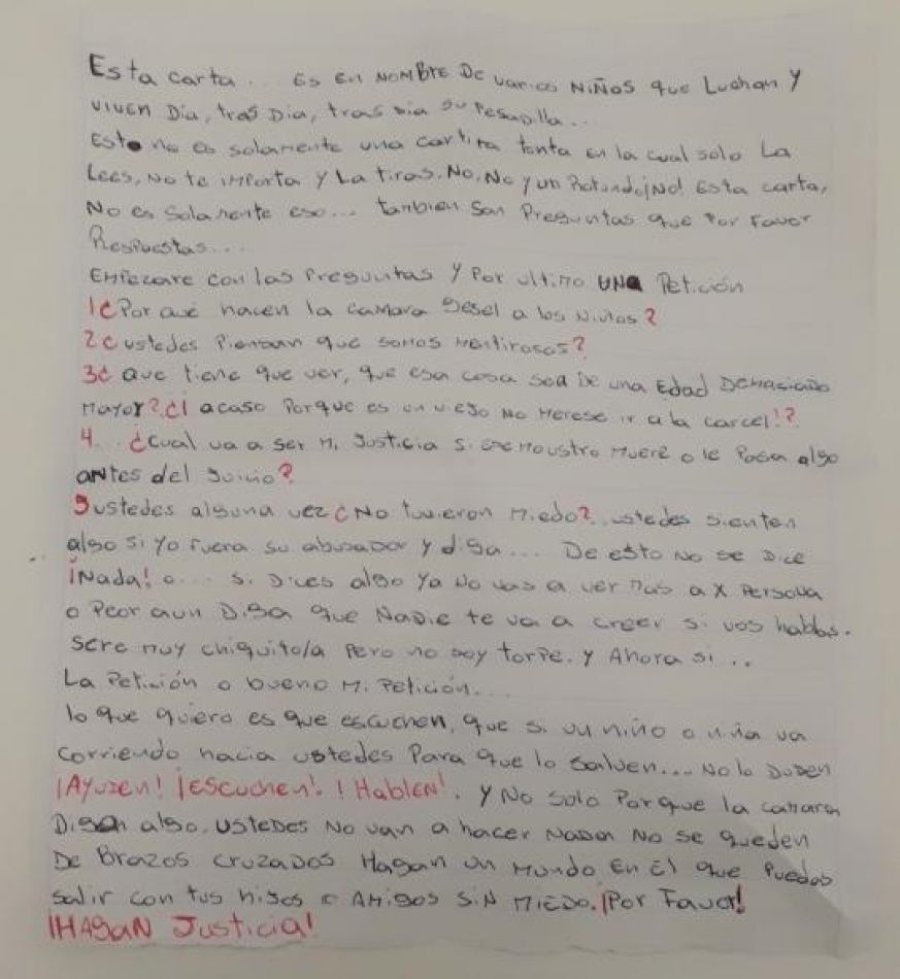 Esta carta... Es En NOMBRE De varios NiÑOS que Luchan y
viven Día, tras Día, tras Día su Pesadilla...
Esto no es solamente una cartita tonta en la cual solo La
Lees, No te importa y La tiras. No, No y un Rotundo ¡No! Esta carta,
No es solamente eso... tambien son Preguntas que Por Favor
Respuestas...
EMPezare con las Preguntas y Por ultimo UNA Petición
1¿Por qué hacen la camara Gesel a los Niños?
2¿ustedes Piensan que somos mentirosos?
3¿ Que tiene que ver, que esa cosa sea De una Edad Demasiado
Mayor? ¿I acaso Porque es un viejo No Merese ir a la carcel!?
4.. ¿Cual va a ser Mi Justicia si ese Moustro Muere o le Pasa algo
antes del Juicio?
5ustedes alguna vez ¿No tuvieron Miedo?.. ustedes sienten
algo si Yo fuera su abusador y diga... De esto No se Dice
¡Nada! o... si Dices algo Ya No vas a ver Mas a X Persona
o Peor aun Diga que Nadie te va a creer si vos hablas.
Sere muy chiquito/a Pero no soy torpe. y Ahora si...
La Petición o bueno Mi Petición...
lo que quiero es que escuchen, que si un niño o niña va
corriendo hacia ustedes Para que lo salven... No lo Duden
¡Ayuden! ¡Escuchen! ¡Hablen!. Y No solo Porque la camara
Diga algo. Ustedes No van a hacer Nada No se queden
De Brazos cruzados Hagan un Mundo En El que Puedas
salir con tus hijos o Amigos SiN MIEDO. ¡Por Favor!
¡HAGAN Justicia!